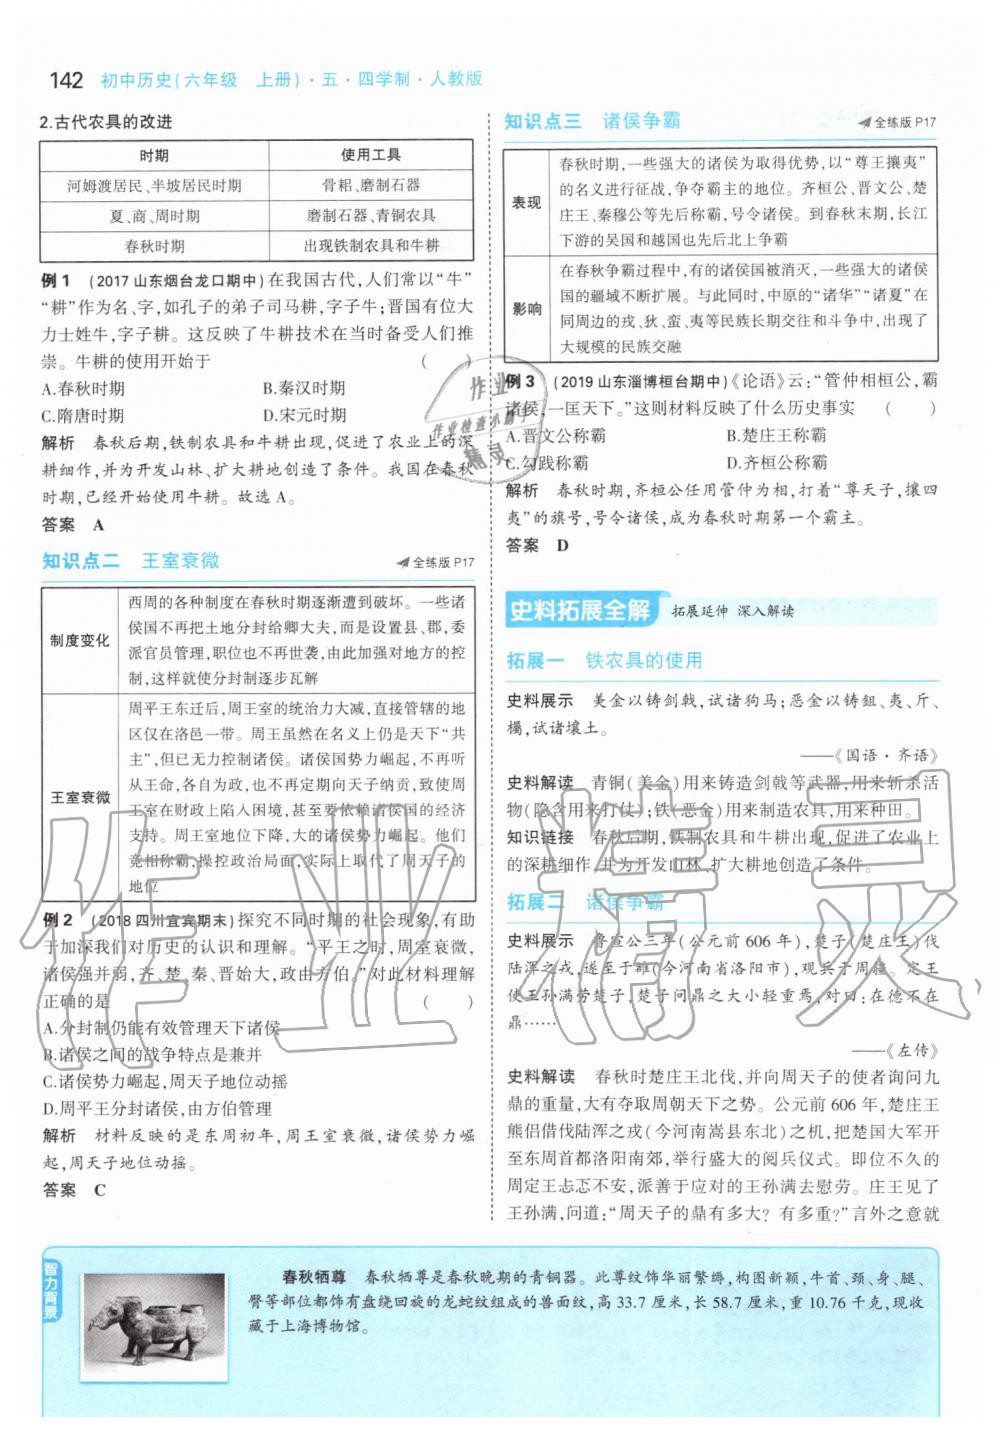 142 初中历史(六年级 上册)·五·四学制·人教版
2.古代农具的改进
时期 使用工具
河姆渡居民、半坡居民时期 骨耜、磨制石器
夏、商、周时期 磨制石器、青铜农具
春秋时期 出现铁制农具和牛耕
例1 (2017山东烟台龙口期中)在我国古代,人们常以“牛”
“耕”作为名、字,如孔子的弟子司马耕,字子牛;晋国有位大
力士姓牛,字子耕。这反映了牛耕技术在当时备受人们推
崇。牛耕的使用开始于 ( )
A.春秋时期 B.秦汉时期
C.隋唐时期 D.宋元时期
解析 春秋后期,铁制农具和牛耕出现,促进了农业上的深
耕细作,并为开发山林、扩大耕地创造了条件。我国在春秋
时期,已经开始使用牛耕。故选A。
答案 A
知识点二 王室衰微 全练版P17
制度变化
西周的各种制度在春秋时期逐渐遭到破坏。一些诸
侯国不再把土地分封给卿大夫,而是设置县、郡,委
派官员管理,职位也不再世袭,由此加强对地方的控
制,这样就使分封制逐步瓦解
王室衰微
周平王东迁后,周王室的统治力大减,直接管辖的地
区仅在洛邑一带。周王虽然在名义上仍是天下“共
主”,但已无力控制诸侯。诸侯国势力崛起,不再听
从王命,各自为政,也不再定期向天子纳贡,致使周
王室在财政上陷入困境,甚至要依赖诸侯国的经济
支持。周王室地位下降,大的诸侯势力崛起。他们
竞相称霸,操控政治局面,实际上取代了周天子的
地位
例2 (2018四川宜宾期末)探究不同时期的社会现象,有助
于加深我们对历史的认识和理解。“平王之时,周室衰微,
诸侯强并弱,齐、楚、秦、晋始大,政由方伯。”对此材料理解
正确的是 ( )
A.分封制仍能有效管理天下诸侯
B.诸侯之间的战争特点是兼并
C.诸侯势力崛起,周天子地位动摇
D.周平王分封诸侯,由方伯管理
解析 材料反映的是东周初年,周王室衰微,诸侯势力崛
起,周天子地位动摇。
答案 C
知识点三 诸侯争霸 全练版P17
表现
春秋时期,一些强大的诸侯为取得优势,以“尊王攘夷”
的名义进行征战,争夺霸主的地位。齐桓公、晋文公、楚
庄王、秦穆公等先后称霸,号令诸侯。到春秋末期,长江
下游的吴国和越国也先后北上争霸
影响
在春秋争霸过程中,有的诸侯国被消灭,一些强大的诸侯
国的疆域不断扩展。与此同时,中原的“诸华”“诸夏”在
同周边的戎、狄、蛮、夷等民族长期交往和斗争中,出现了
大规模的民族交融
例3 (2019山东淄博桓台期中)《论语》云:“管仲相桓公,霸
诸侯,一匡天下。”这则材料反映了什么历史事实 ( )
A.晋文公称霸 B.楚庄王称霸
C.勾践称霸 D.齐桓公称霸
解析 春秋时期,齐桓公任用管仲为相,打着“尊天子,攘四
夷”的旗号,号令诸侯,成为春秋时期第一个霸主。
答案 D
史料拓展全解 拓展延伸 深入解读
拓展一 铁农具的使用
史料展示 美金以铸剑戟,试诸狗马;恶金以铸鉏、夷、斤、
欘,试诸壤土。
——《国语·齐语》
史料解读 青铜(美金)用来铸造剑戟等武器,用来斩杀活
物(隐含用来打仗);铁(恶金)用来制造农具,用来种田。
知识链接 春秋后期,铁制农具和牛耕出现,促进了农业上
的深耕细作,并为开发山林、扩大耕地创造了条件。
拓展二 诸侯争霸
史料展示 鲁宣公三年(公元前606年),楚子(楚庄王)伐
陆浑之戎,遂至于雒(今河南省洛阳市),观兵于周疆。定王
使王孙满劳楚子,楚子问鼎之大小轻重焉,对曰:在德不在
鼎……
——《左传》
史料解读 春秋时楚庄王北伐,并向周天子的使者询问九
鼎的重量,大有夺取周朝天下之势。公元前606年,楚庄王
熊侣借伐陆浑之戎(今河南嵩县东北)之机,把楚国大军开
至东周首都洛阳南郊,举行盛大的阅兵仪式。即位不久的
周定王忐忑不安,派善于应对的王孙满去慰劳。庄王见了
王孙满,问道:“周天子的鼎有多大?有多重?”言外之意就
智力背景
春秋牺尊 春秋牺尊是春秋晚期的青铜器。此尊纹饰华丽繁缛,构图新颖,牛首、颈、身、腿、
臀等部位都饰有盘绕回旋的龙蛇纹组成的兽面纹,高33.7厘米,长58.7厘米,重10.76千克,现收
藏于上海博物馆。
作业
作业检查小助手
精灵
作业精灵